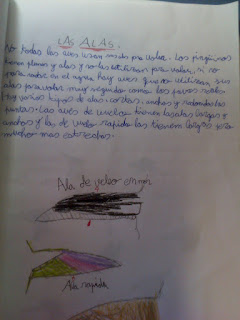 LAS ALAS.
No todas las aves usan sus alas para volar. Los pingüinos
tienen plumas y alas y no las utilizan para volar, si no
para nadar en el agua hay aves que no utilizan sus
alas para volar muy seguidas como los pavos reales.
Hay varios tipos de alas: cortas, anchas y redondas las
puntas. Las aves de tienen las alas largas y
anchas y las de vuelo rapido las tienen largas pero
mucho mas estrechas.
Ala de
Ala rapida